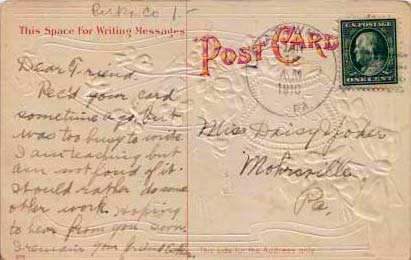 Berks Co 1-
This Space For Writing Messages
POST CARD
U.S. POSTAGE
ONE CENT
A.M
1910
PA.
Dear Friend.
Rec'd your card
sometime ago but
was too busy to write
I am teaching but
am not fond of it.
Would rather do some
other work. Hoping
to hear from you soon
I remain your friend
Miss Daisy Yoder
Mohrsville
Pa.
This side for the Address only